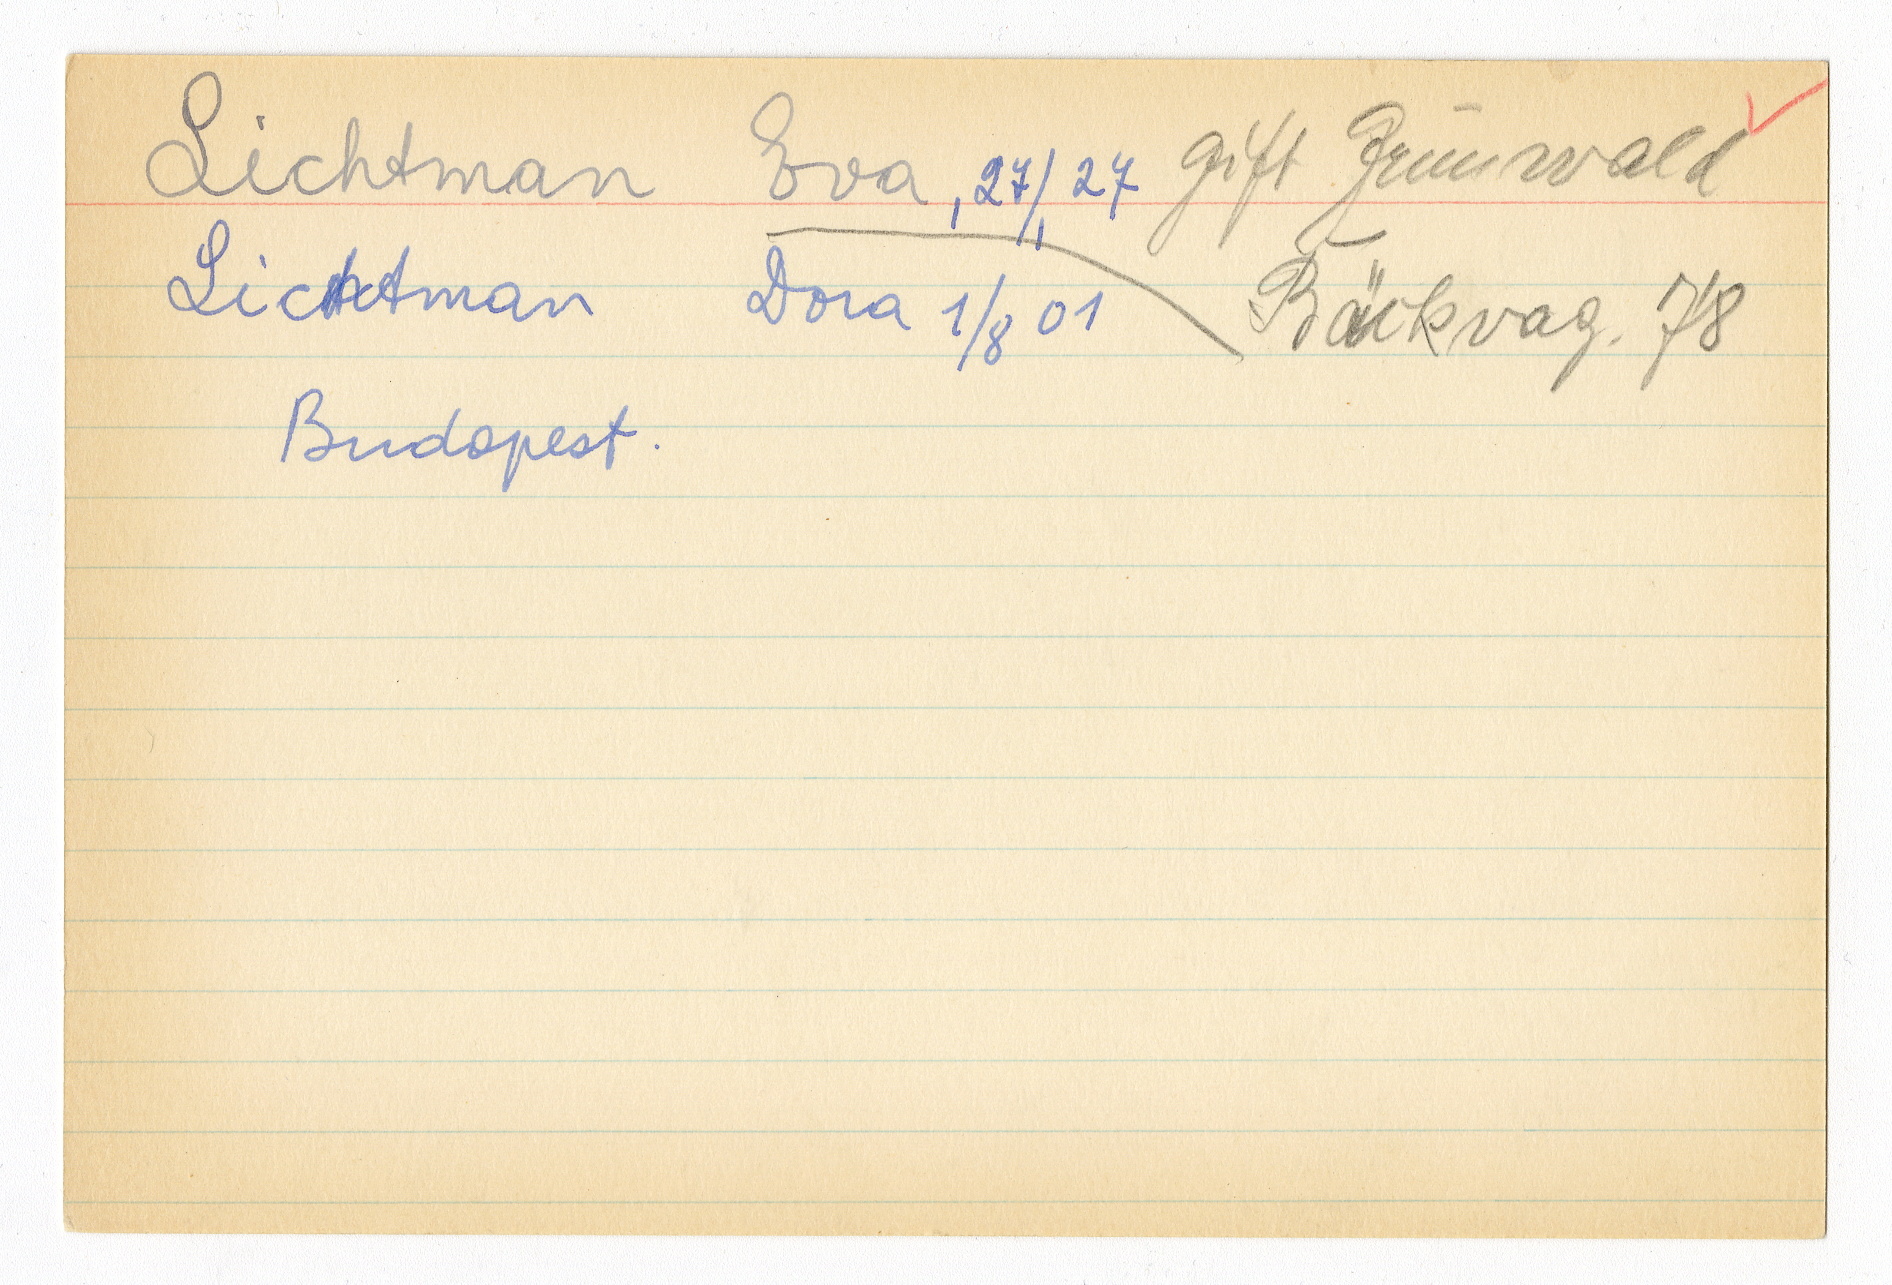 Lichtman Eva, 27/1 27 gift Grünwald
Lichtman Dora 1/8 01 Bäckvag. 78
Budapest.